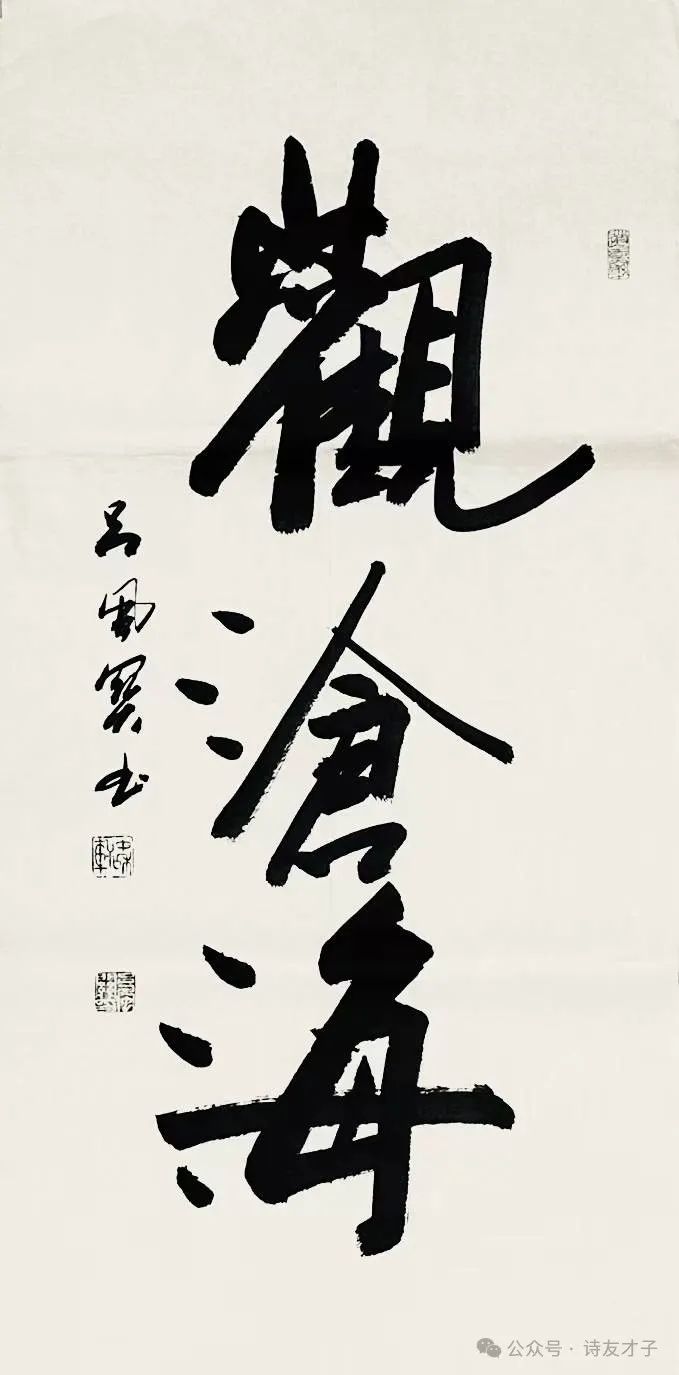 觀滄海
吕風寶书
公众号·诗友才子